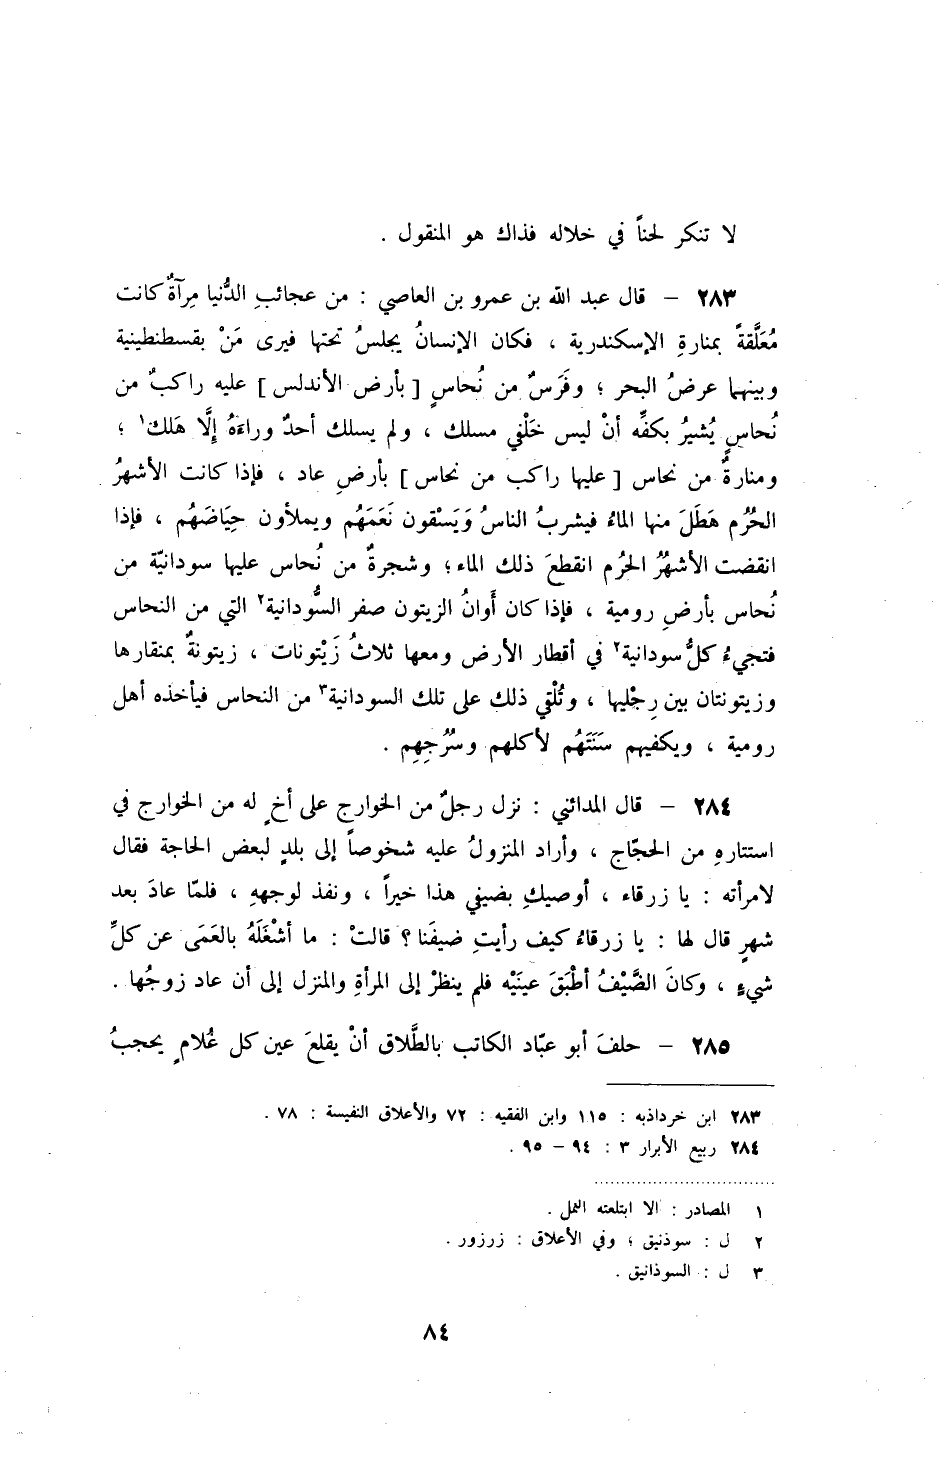 لا تنكر لحناً في خلاله فذاك هو المنقول .
٢٨٣ – قال عبد الله بن عمرو بن العاصي : من عجائبِ الدُّنيا مِرآةٌ كانت
مُعَلَّقةً بمنارةِ الإسكندرية ، فكان الإنسانُ يجلسُ تحتها فيرى مَنْ بقسطنطينية
وبينهما عرضُ البحر ؛ وفَرَسٌ من نُحاسٍ [ بأرض الأندلس ] عليه راكبٌ من
نُحاسٍ يُشيرُ بكفِّه أنْ ليس خَلْفي مسلك ، ولم يسلك أحدٌ وراءَهُ إلَّا هَلك١ ؛
ومنارةٌ من نحاس [ عليها راكب من نحاس ] بأرضِ عاد ، فإذا كانت الأشهرُ
الحُرُم هَطَلَ منها الماءُ فيشربُ الناسُ وَيَسْقون نَعَمَهُم ويملأون حِيَاضَهُم ، فإذا
انقضت الأشهُرُ الحرُم انقطعَ ذلك الماء ؛ وشجرةٌ من نُحاس عليها سودانيّة من
نُحاس بأرضِ رومية ، فإذا كان أَوانُ الزيتون صفر السُّودانية٢ التي من النحاس
فتجيءُ كلُّ سودانية٢ في أقطار الأرض ومعها ثلاثُ زَيْتونات ، زيتونةٌ بمنقارها
وزيتونتان بين رِجْليها ، وتُلْقي ذلك على تلك السودانية٣ من النحاس فيأخذه أهل
رومية ، ويكفيهم سَنَتَهُم لأكلهم وسُرُجِهِم .
٢٨٤ – قال المدائني : نزل رجلٌ من الخوارج على أخٍ له من الخوارج في
استتارهِ من الحجّاج ، وأراد المنزولُ عليه شخوصاً إلى بلدٍ لبعض الحاجة فقال
لامرأته : يا زرقاء ، أوصيكِ بضيفي هذا خيراً ، ونفذ لوجههِ ، فلمّا عادَ بعد
شهرٍ قال لها : يا زرقاءُ كيف رأيتِ ضيفَنا ؟ قالتْ : ما أشْغَلَهُ بالعَمَى عن كلِّ
شيءٍ ، وكانَ الضَّيْفُ أطْبَقَ عينَيْه فلم ينظرْ إلى المرأةِ والمنزل إلى أن عاد زوجُها .
٢٨٥ – حلفَ أبو عبّاد الكاتب بالطَّلاق أنْ يقلعَ عين كل غُلامٍ يحجبُ
٢٨٣ ابن خرداذبه : ١١٥ وابن الفقيه : ٧٢ والأعلاق النفيسة : ٧٨ .
٢٨٤ ربيع الأبرار ٣ : ٩٤ – ٩٥ .
١ المصادر : الا ابتلعته النمل .
٢ ل : سوذنيق ؛ وفي الأعلاق : زرزور .
٣ ل : السوذانيق .
٨٤